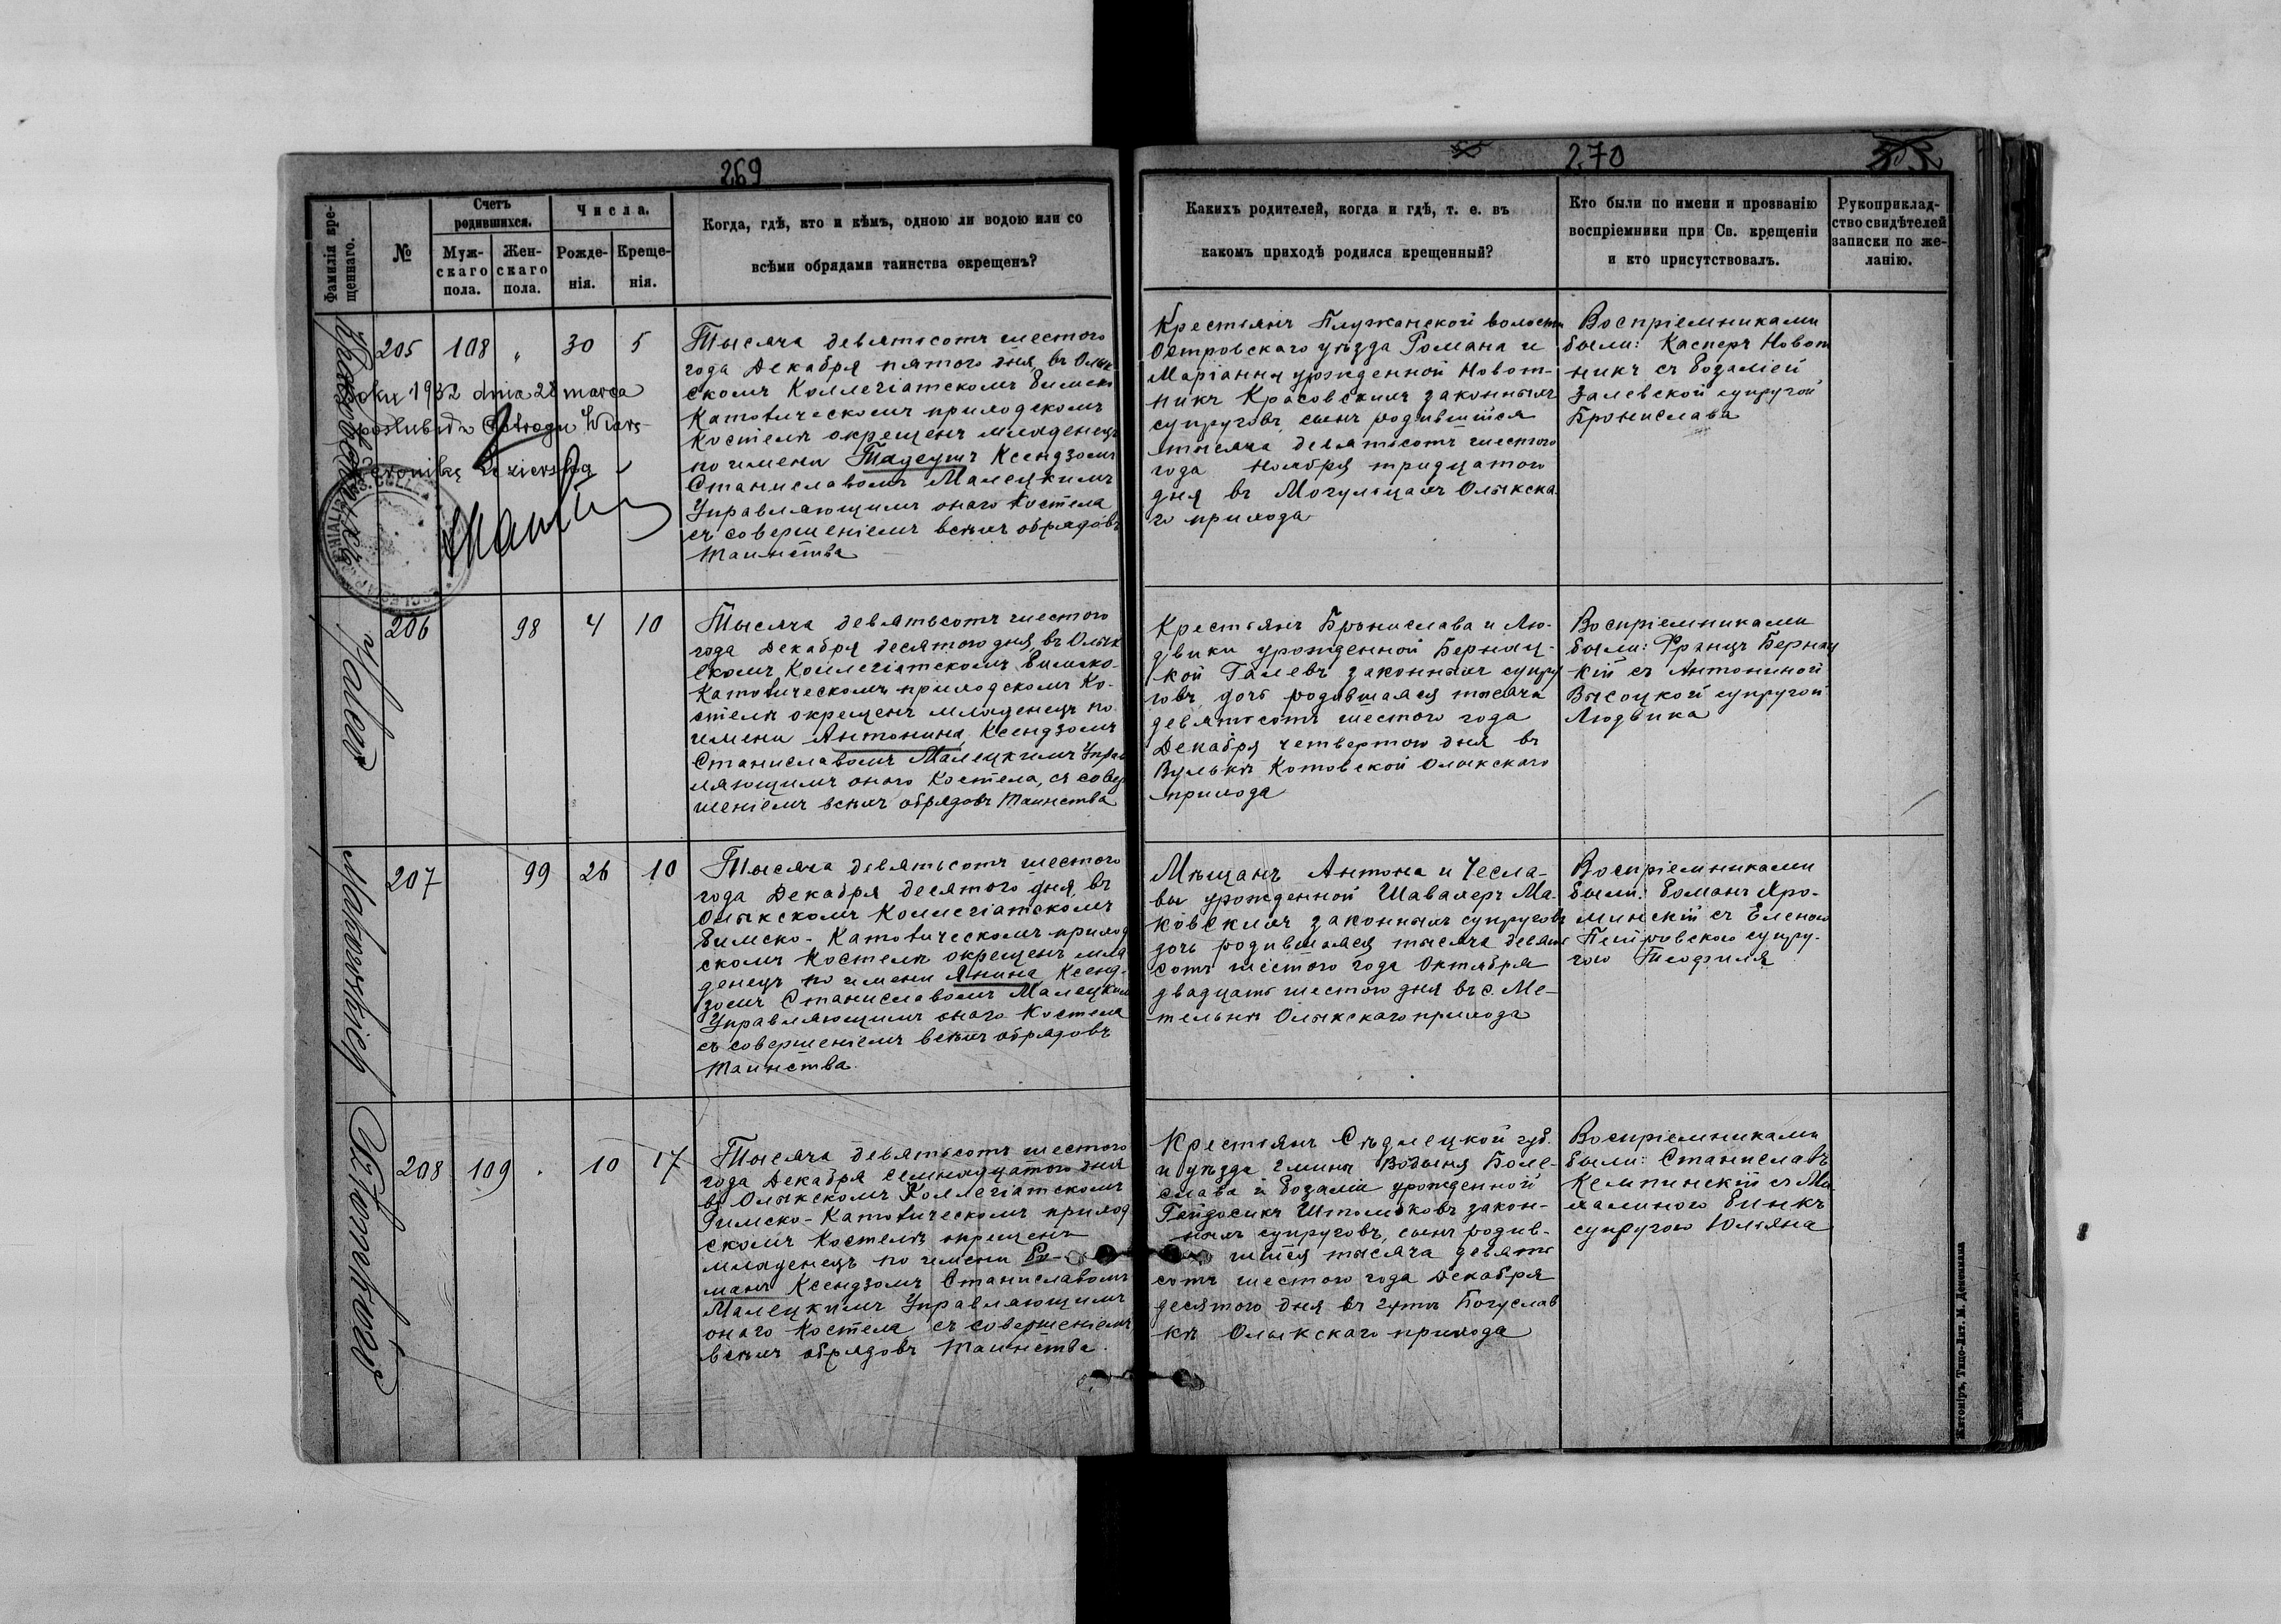 269
Фамилія кре-
щеннаго.
№
Счетъ
родившихся.
Муж-
скаго
пола.
Жен-
скаго
пола.
Числа.
Рожде-
нія.
Креще-
нія.
Когда, гдѣ, кто и кѣмъ, одною ли водою или со
всѣми обрядами таинства окрещенъ?
205 108 „ 30 5
oku 1932 dnia 28 marca
poślubił w Ostrogu
Weronikę
Тысяча девятьсотъ шестого
года Декабря пятого дня, въ Олык
скомъ Коллегіатскомъ Римско
Католическомъ приходскомъ
Костелѣ окрещенъ младенецъ
по имени Тадеушъ Ксендзомъ
Станиславомъ Малецкимъ
Управляющимъ онаго Костела
съ совершеніемъ всѣхъ обрядовъ
Таинства
206 98 4 10
Galew
Тысяча девятьсотъ шестого
года Декабря десятого дня, въ Олык
скомъ Коллегіатскомъ Римско-
Католическомъ приходскомъ Ко-
стелѣ окрещенъ младенецъ по
имени Антонина Ксендзомъ
Станиславомъ Малецкимъ Упра
ляющимъ онаго Костела, съ совер
шеніемъ всѣхъ обрядовъ Таинства
207 99 26 10
Makowskich
Тысяча девятьсотъ шестого
года Декабря десятого дня, въ
Олыкскомъ Коллегіатскомъ
Римско-Католическомъ приход
скомъ Костелѣ окрещенъ мла
денецъ по имени Янина Ксенд-
зомъ Станиславомъ Малецким
Управляющимъ онаго Костела
съ совершеніемъ всѣхъ обрядовъ
Таинства
208 109 . 10 17
Sztomków
Тысяча девятьсотъ шестого
года Декабря семнадцатого дня
въ Олыкскомъ Коллегіатскомъ
Римско-Католическомъ приход
скомъ Костелѣ окрещенъ
младенецъ по имени Ро-
манъ Ксендзомъ Станиславомъ
Малецкимъ Управляющимъ
онаго Костела съ совершеніемъ
всѣхъ обрядовъ Таинства.
270
Какихъ родителей, когда и гдѣ, т. е. въ
какомъ приходѣ родился крещенный?
Кто были по имени и прозванію
воспріемники при Св. крещеніи
и кто присутствовалъ.
Рукоприклад-
ство свидѣтелей
записки по же-
ланію.
Крестьянъ Плужанской волости
Островскаго уѣзда Романа и
Маріанны урожденной Новот-
никъ Красовскихъ законныхъ
супруговъ, сынъ родившійся
тысяча девятьсотъ шестого
года Ноября тридцатого
дня въ Могульцахъ Олыкска
го прихода
Воспріемниками
были: Касперъ Новот
никъ съ Розаліей
Залевской супругой
Бронислава
Крестьянъ Бронислава и Лю-
двики урожденной Бернац-
кой Галевъ законныхъ супру
говъ дочь родившаяся тысяча
девятьсотъ шестого года
Декабря четвертого дня въ
Вулькѣ Котовской Олыкскаго
прихода
Воспріемниками
были: Францъ Бернац
кій съ Антониной
Высоцкой супругой
Людвика
Мѣщанъ Антона и Чесла-
вы урожденной Шавалеръ Ма-
ковскихъ законныхъ супруговъ
дочь родившаяся тысяча девять
сотъ шестого года Октября
двадцать шестого дня въ с. Ме-
тельнѣ Олыкскаго прихода
Воспріемниками
были: Романъ Яро-
минскій съ Еленою
Петровскою супру-
гою Теофиля
Крестьянъ Сѣдлецкой губ.
и уѣзда гмины Водыня Боле-
слава и Розаліи урожденной
Гайдосикъ Штомковъ закон-
ныхъ супруговъ, сынъ родив-
шійся тысяча девять
сотъ шестого года Декабря
десятого дня въ гутѣ Богуслав
кѣ Олыкскаго прихода
Воспріемниками
были: Станиславъ
Кемпинскій съ Ми
халиною Ринкъ
супругою Юльяна
Житоміръ, Типо-Лит. М. Дененмана